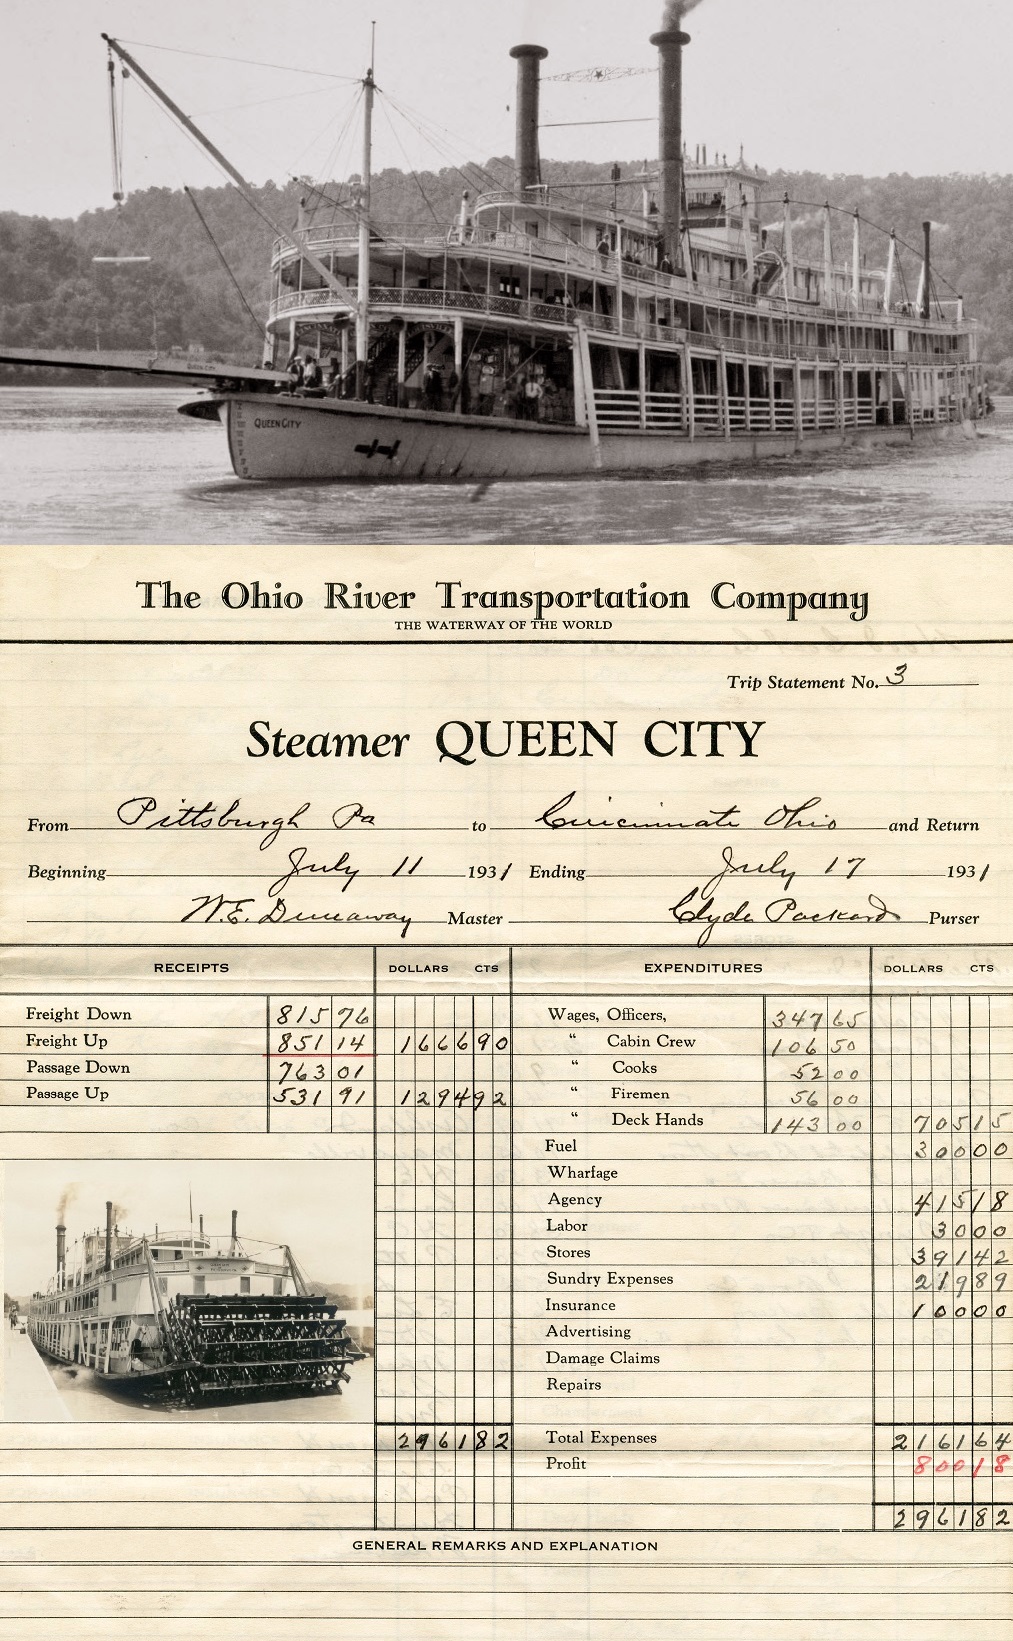 QUEEN CITY
QUEEN CITY
The Ohio River Transportation Company
THE WATERWAY OF THE WORLD
Trip Statement No. 3
Steamer QUEEN CITY
From Pittsburgh Pa to Cincinnati Ohio and Return
Beginning July 11 1931 Ending July 17 1931
W.E. Dunaway Master Clyde Packard Purser
RECEIPTS DOLLARS CTS EXPENDITURES DOLLARS CTS
Freight Down 815 76 Wages, Officers, 347 65
Freight Up 851 14 1666 90 " Cabin Crew 106 50
Passage Down 763 01 " Cooks 52 00
Passage Up 531 91 1294 92 " Firemen 56 00
" Deck Hands 143 00 705 15
Fuel 300 00
Wharfage
Agency 415 18
Labor 30 00
Stores 391 42
Sundry Expenses 219 89
Insurance 100 00
Advertising
Damage Claims
Repairs
2961 82 Total Expenses 2161 64
Profit 800 18
2961 82
GENERAL REMARKS AND EXPLANATION